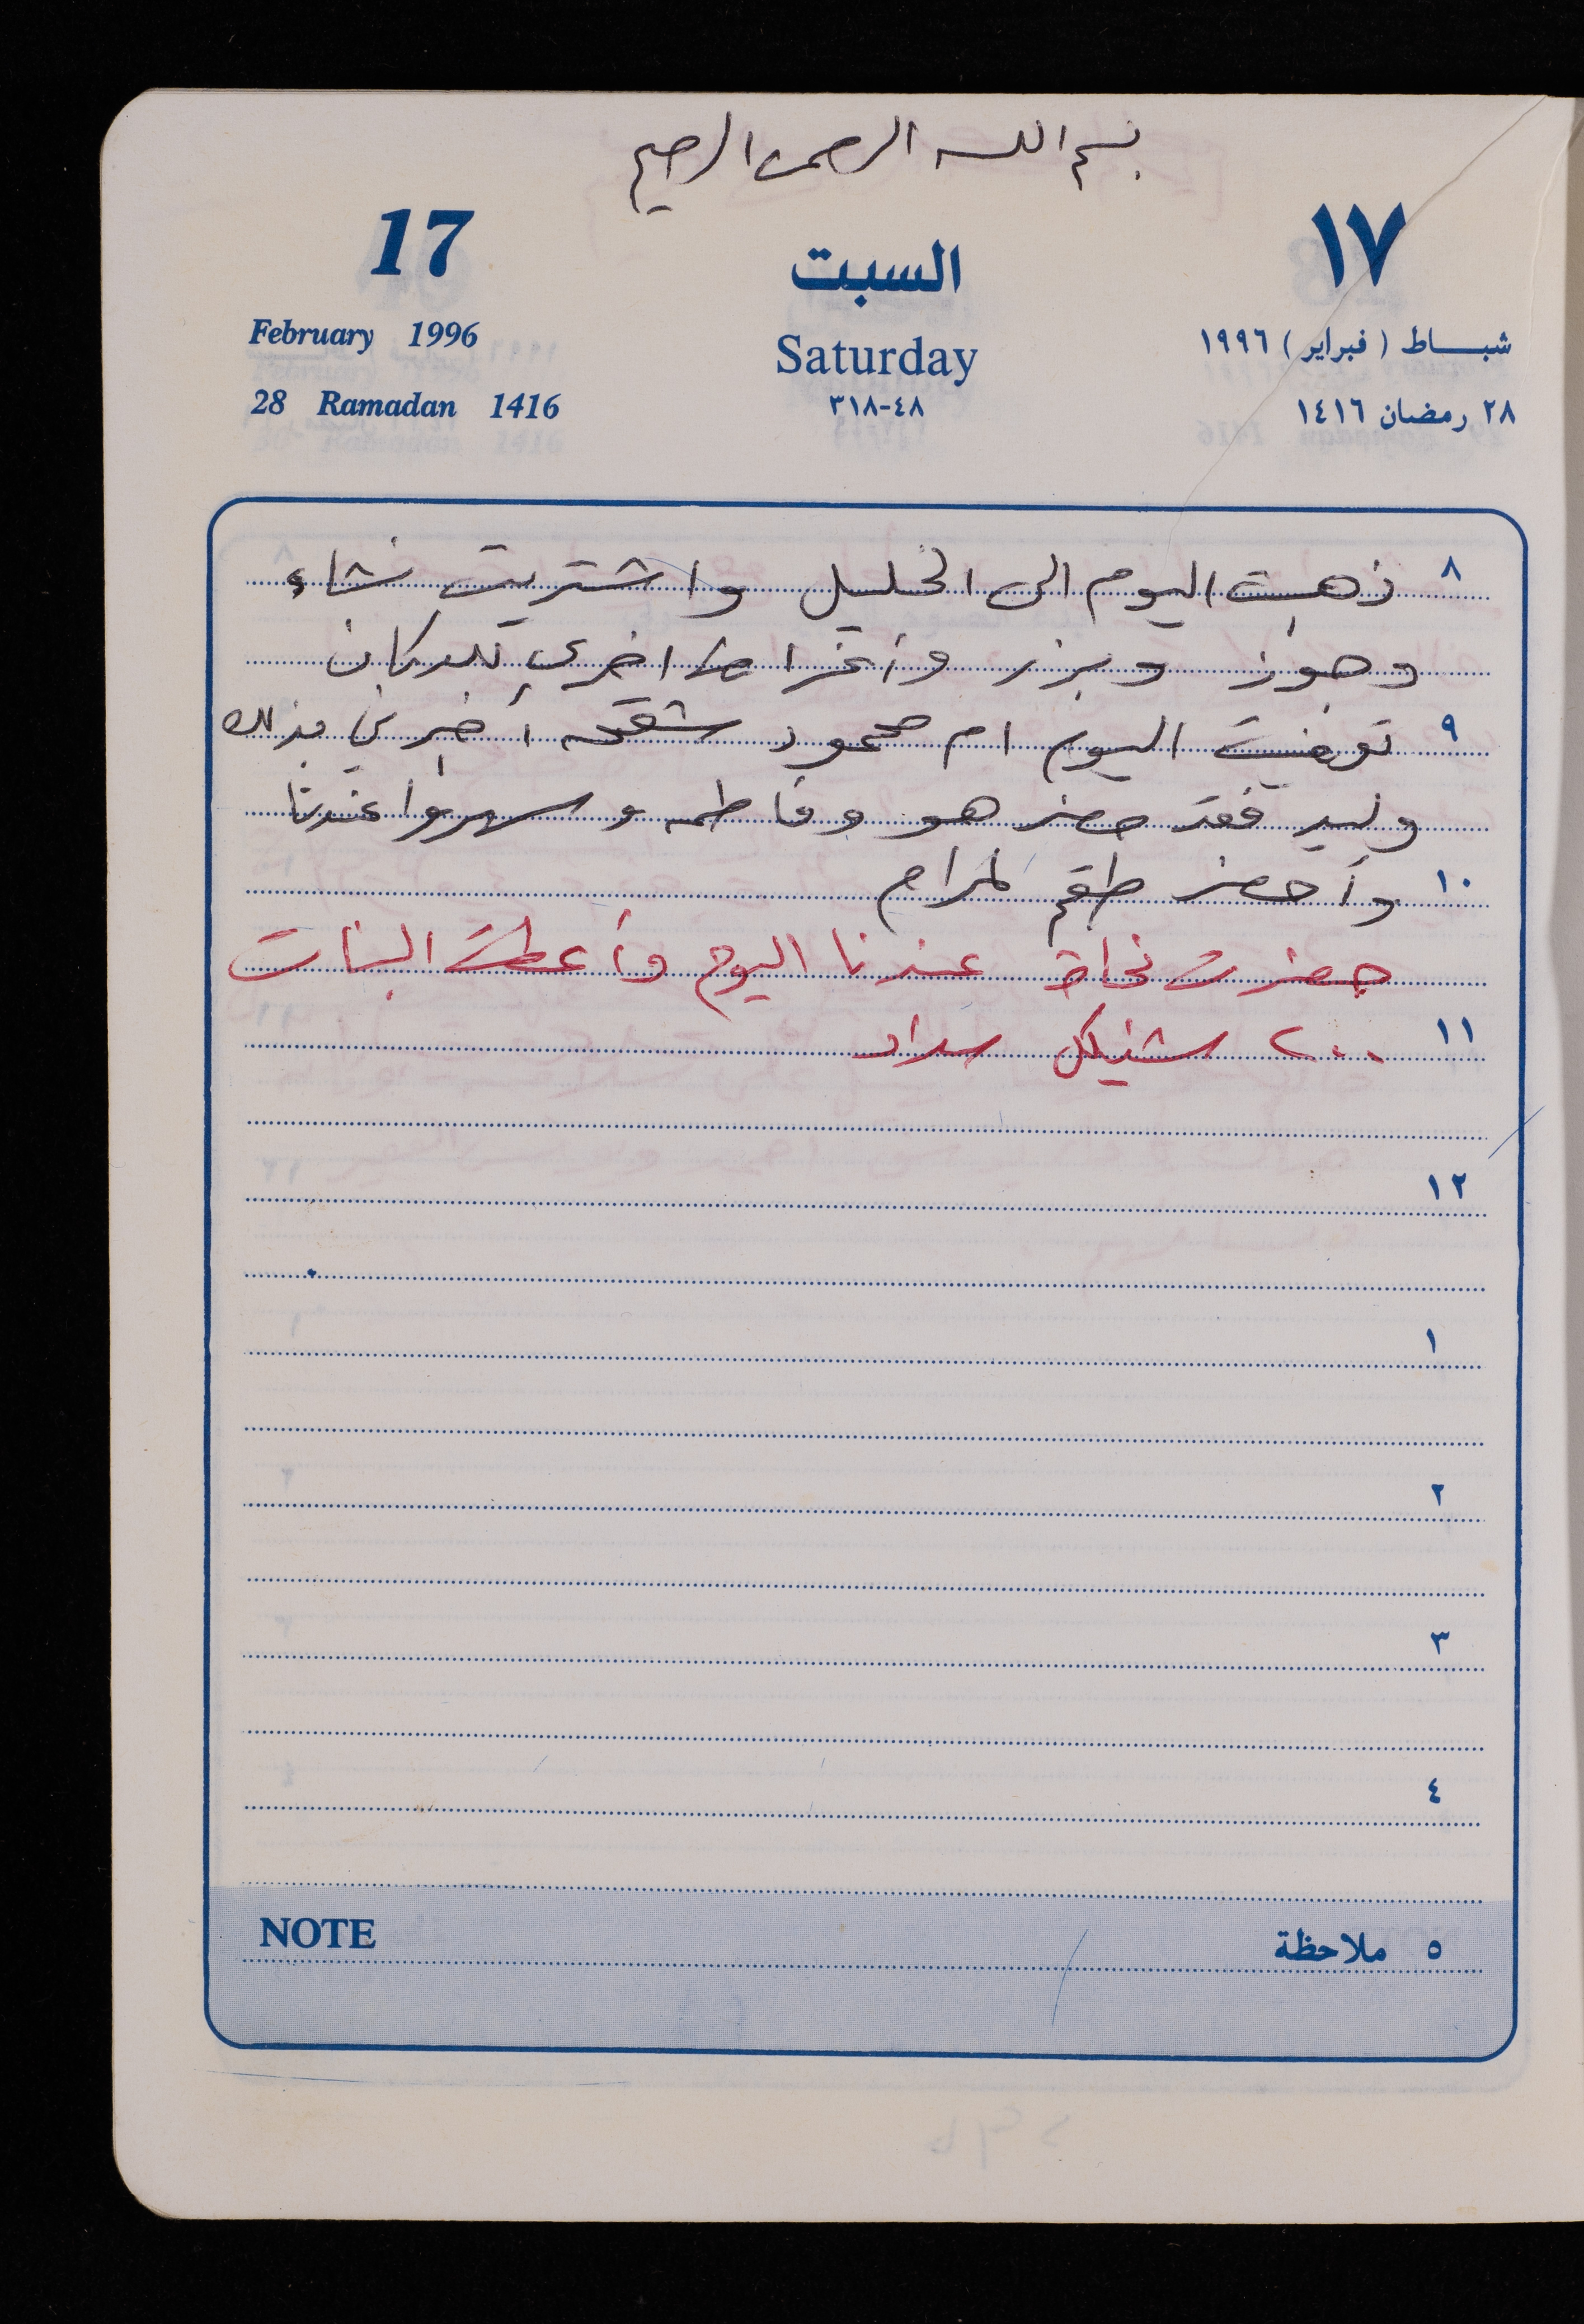 بسم الله الرحمن الرحيم
17 السبت ١٧
February 1996 Saturday شباط (فبراير) ١٩٩٦
28 Ramadan 1416 ٤٨-٣١٨ ٢٨ رمضان ١٤١٦
٨ ذهبت اليوم الى الخليل واشتريت نشاء
وجوز وبزر وأغراض اخرى للدكان
٩ توفيت اليوم ام محمود أخبرني بذلك
وليد فقد حضر هو وفاطمه وسهروا عندنا
١٠ وأحضر طقم لمرام
حضرت نجاة عندنا اليوم وأعطت البنات
١١ ٢٠٠ شيكل سداد
١٢
١
٢
٣
٤
NOTE ٥ ملاحظة